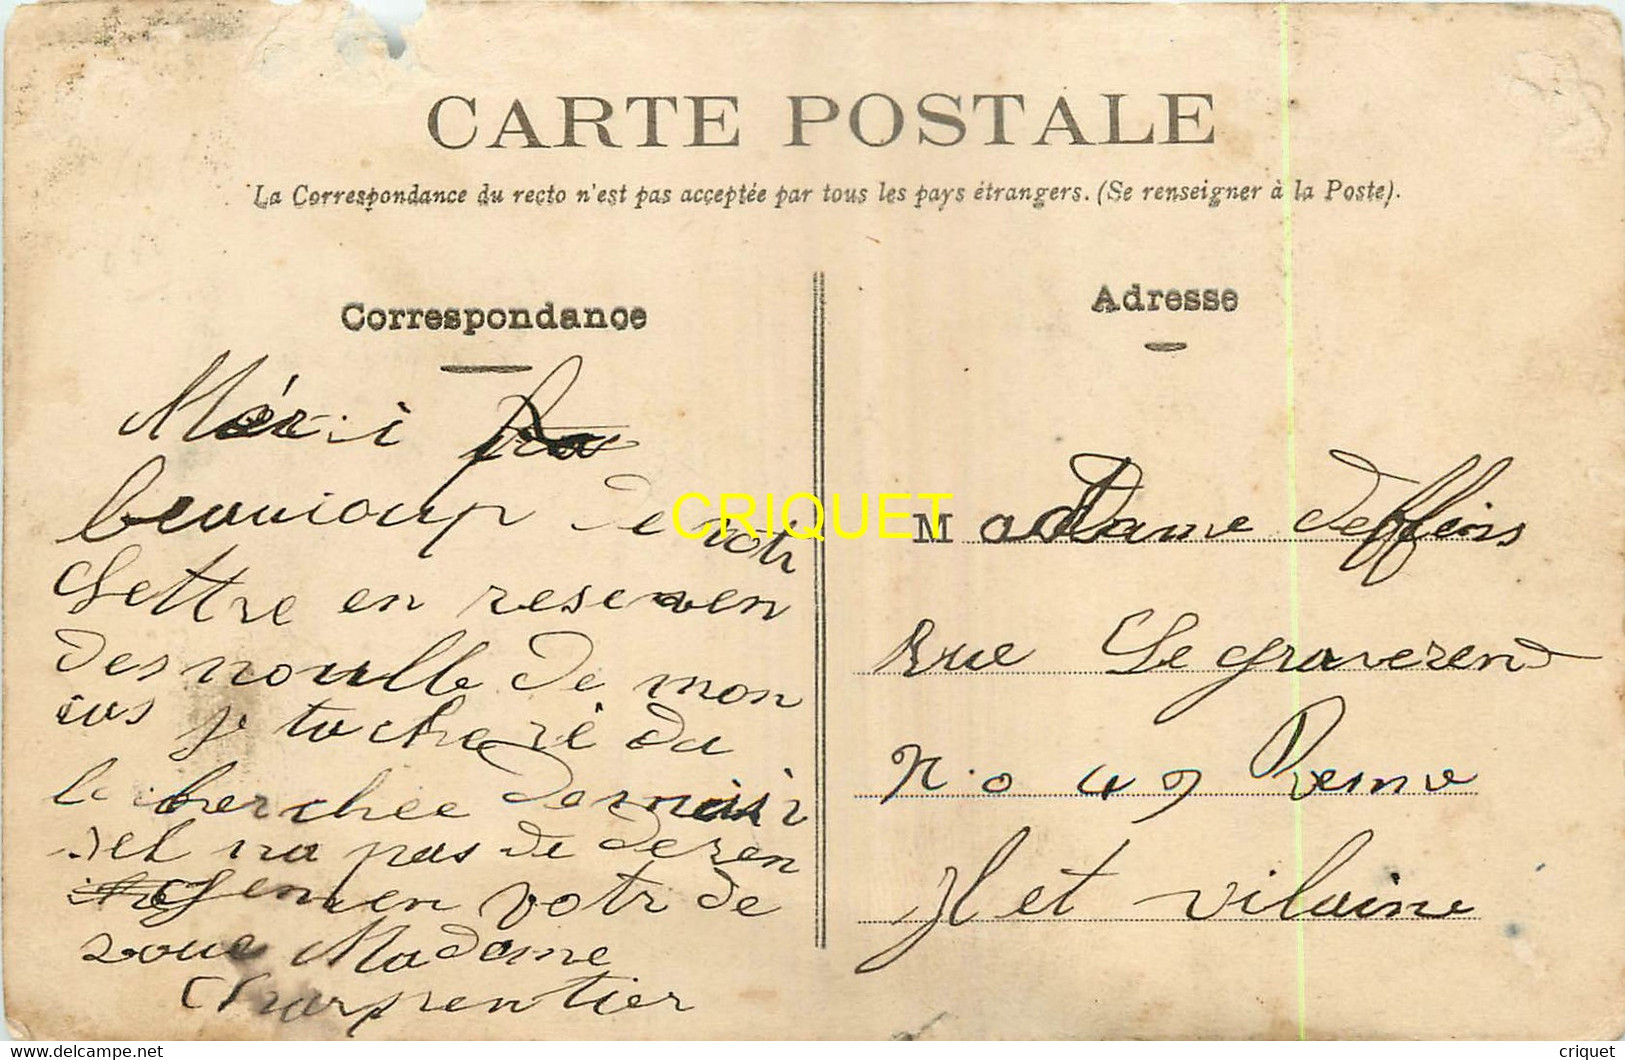 CARTE POSTALE
La Correspondance du recto n'est pas acceptée par tous les pays étrangers. (Se renseigner à la Poste).
Correspondance
Mérci
beaucoup de votr
Lettre en reseven
des noulle de mon
cus je tacheré da
le cherchee demaisr
sel na pas de deren
gemen votr de
voue Madame
Charpentier
Adresse
Madame deffeins
Rue Legraverend
No 49 Renne
Il et vilaine
CRIQUET
www.delcampe.net
criquet